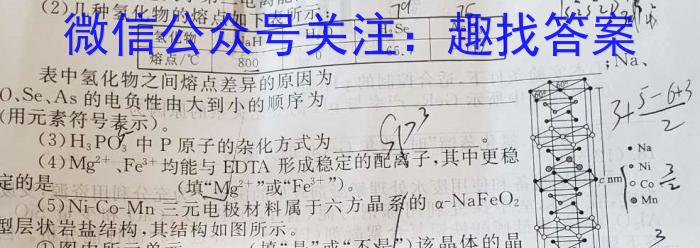 (2)几种氢化物的熔点如下表所示
微信公众号关注：趣找答案
氢化物 NaH H₂Se
熔点/℃ 800 0
表中氢化物之间熔点差异的原因为 ;Na、
O、Se、As 的电负性由大到小的顺序为
(用元素符号表示)。
(3)H₃PO₃ 中 P 原子的杂化方式为 sp³ 。
3+(5-6+3)/2
(4)Mg²⁺、Fe³⁺均能与 EDTA 形成稳定的配离子,其中更稳
定的是 (填“Mg²⁺”或“Fe³⁺”)。
(5)Ni-Co-Mn 三元电极材料属于六方晶系的 α-NaFeO₂
型层状岩盐结构,其结构如图所示。
①图中所示单元 (填“是”或“不是”)该晶体的晶
60° 60°
c nm
Na
Ni
O Co
Mn
3/2
3